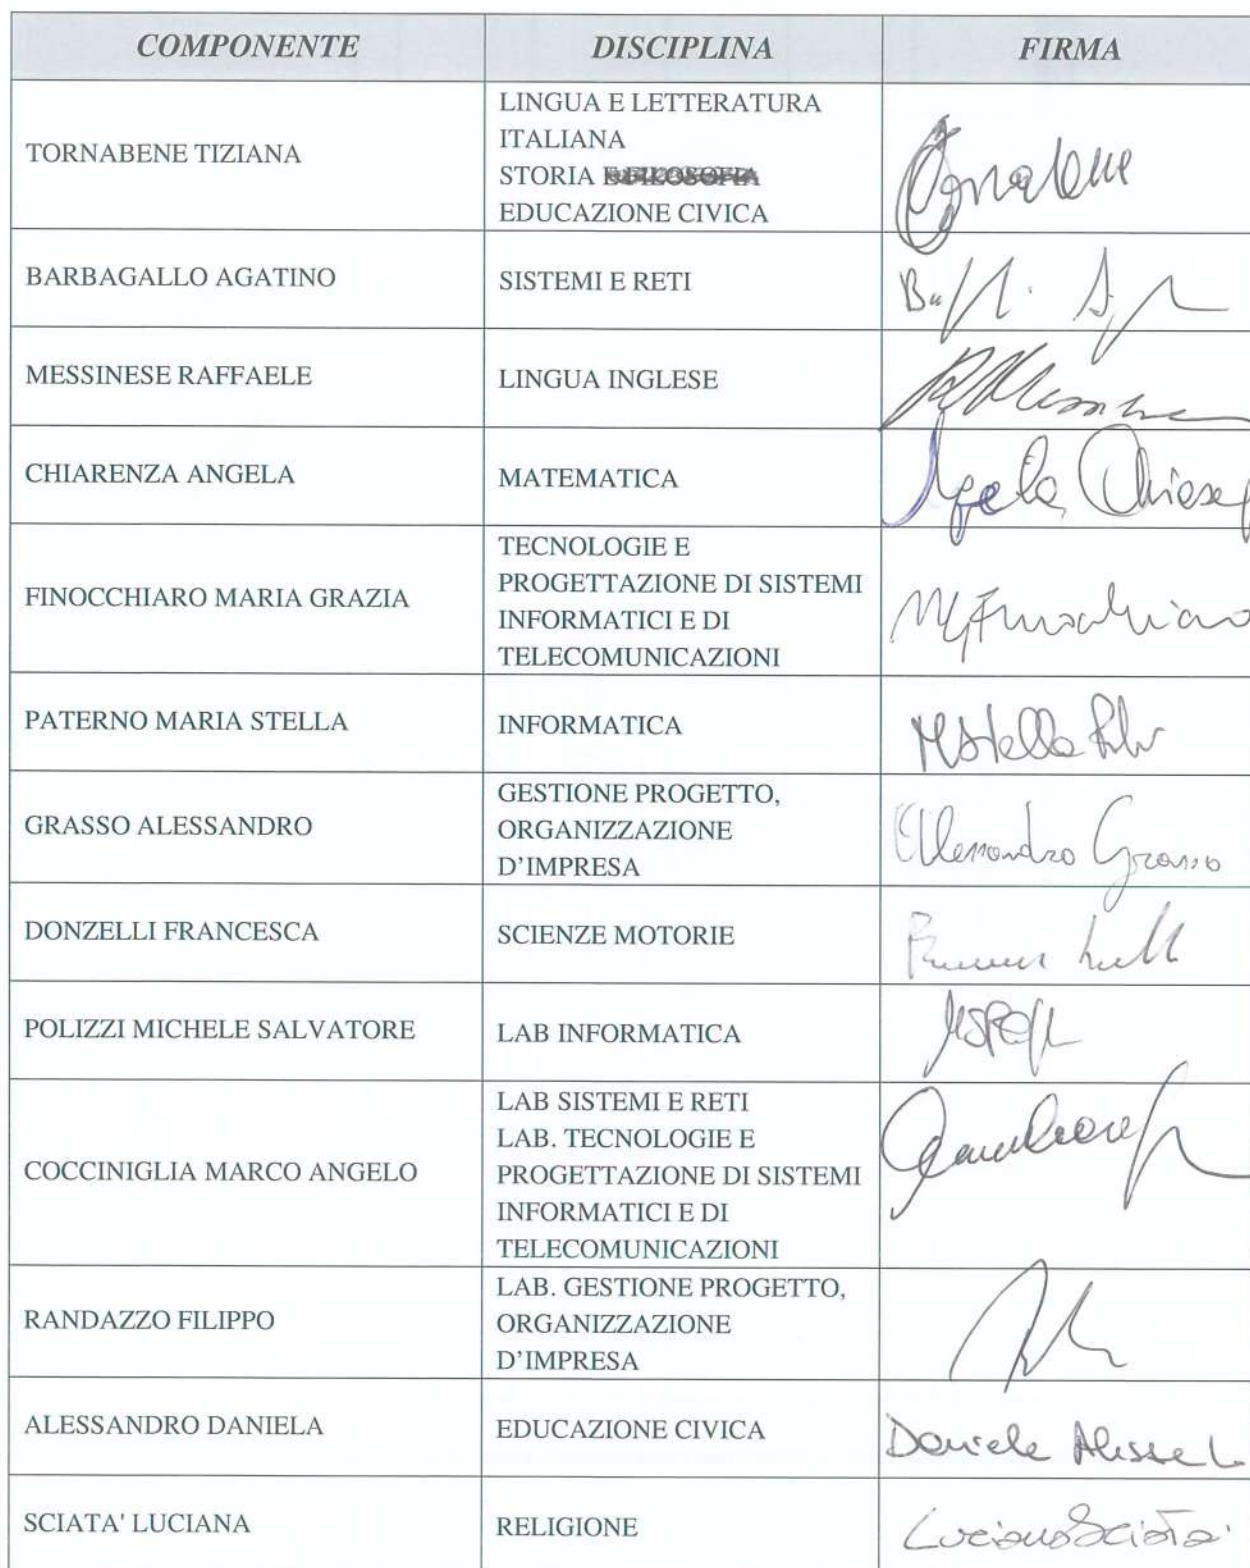 COMPONENTE DISCIPLINA FIRMA
TORNABENE TIZIANA
LINGUA E LETTERATURA
ITALIANA
STORIA E FILOSOFIA
EDUCAZIONE CIVICA
BARBAGALLO AGATINO SISTEMI E RETI
MESSINESE RAFFAELE LINGUA INGLESE
CHIARENZA ANGELA MATEMATICA Angela
FINOCCHIARO MARIA GRAZIA
TECNOLOGIE E
PROGETTAZIONE DI SISTEMI
INFORMATICI E DI
TELECOMUNICAZIONI
MGFinocchiaro
PATERNO MARIA STELLA INFORMATICA MStella
GRASSO ALESSANDRO
GESTIONE PROGETTO,
ORGANIZZAZIONE
D'IMPRESA
Alessandro Grasso
DONZELLI FRANCESCA SCIENZE MOTORIE
POLIZZI MICHELE SALVATORE LAB INFORMATICA
COCCINIGLIA MARCO ANGELO
LAB SISTEMI E RETI
LAB. TECNOLOGIE E
PROGETTAZIONE DI SISTEMI
INFORMATICI E DI
TELECOMUNICAZIONI
RANDAZZO FILIPPO
LAB. GESTIONE PROGETTO,
ORGANIZZAZIONE
D'IMPRESA
ALESSANDRO DANIELA EDUCAZIONE CIVICA Daniela
SCIATA' LUCIANA RELIGIONE Luciana Sciata'